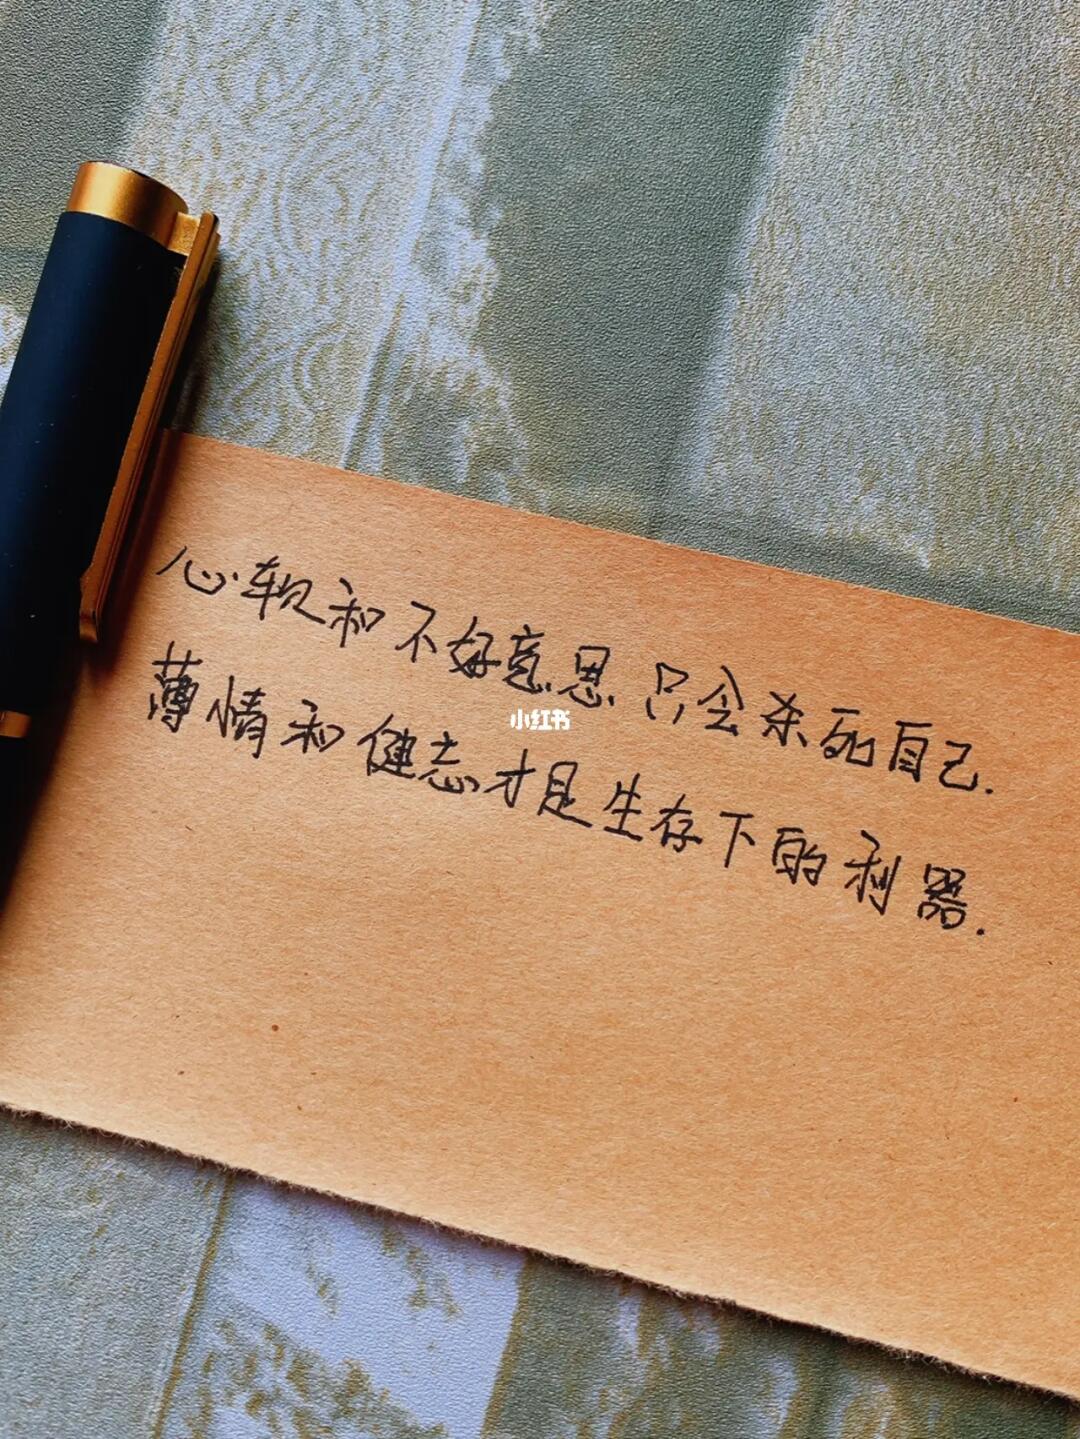 心软和不好意思只会杀死自己.
薄情和健忘才是生存下的利器.
小红书